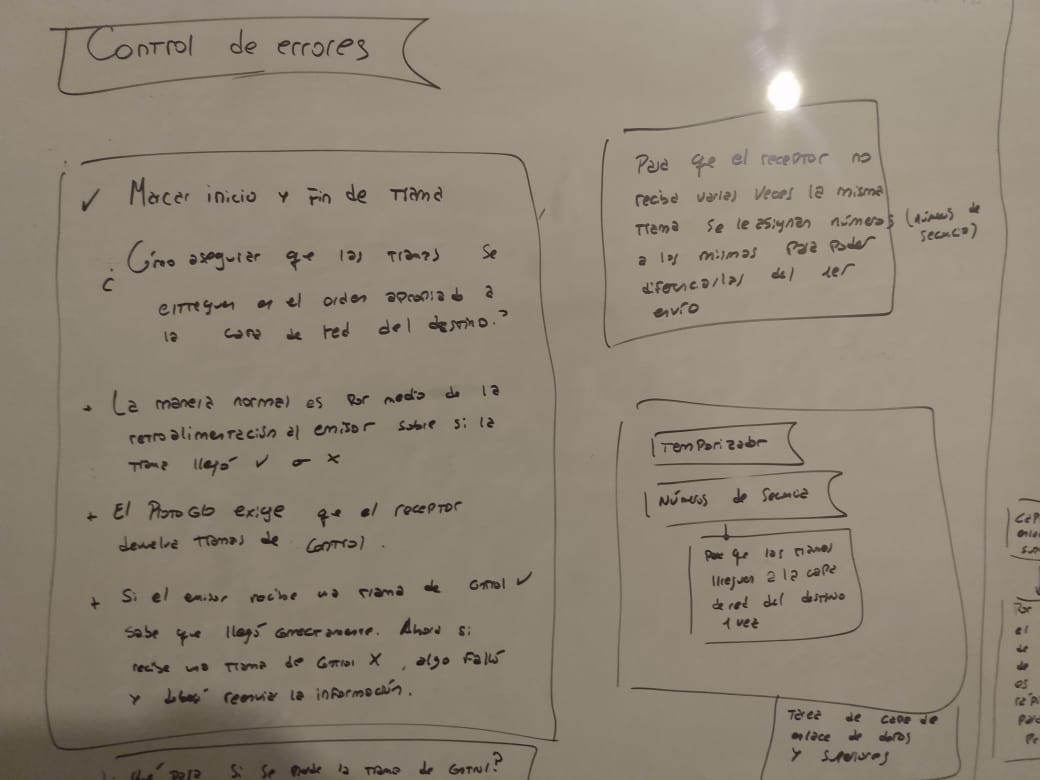 Control de errores
✓ Marcar inicio y Fin de trama
¿Cómo asegurar que las tramas se
entreguen en el orden apropiado a
la capa de red del destino?
+ La manera normal es por medio de la
retroalimentación al emisor sobre si la
trama llegó ✓ o X
+ El Protocolo exige que el receptor
devuelva tramas de control.
+ Si el emisor recibe una trama de control ✓
sabe que llegó correctamente. Ahora si
recibe una trama de control X, algo falló
y deberá reenviar la información.
¿Qué pasa si se pierde la trama de control?
Para que el receptor no
reciba varias veces la misma
trama se le asignan números (números de
secuencia)
a las mismas para poder
diferenciarlas del 1er
envío
Temporizador
Números de secuencia
Para que las tramas
lleguen a la capa
de red del destino
1 vez
Tarea de capa de
enlace de datos
y superiores
Por
el
de
de